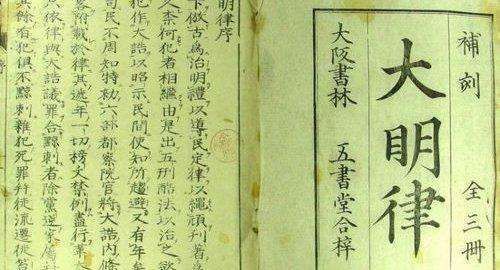 補刻
大明律
全三冊
大阪書林
五書堂合梓
明律序
下倣古為治明禮以導民定律以繩頑刊著
久奈何犯者相繼由是出五刑酷法以治之欲
犯作大誥以昭示民間使知所趨避又有年
司民不周知特勅六部都察院官將大誥内條
附載於律其逓年一切榜文禁例盡行革
依律與大誥議罪合黥刺者除黨逆家
餘有犯俱不黥刺雜犯死罪幷徒流遷徙笞